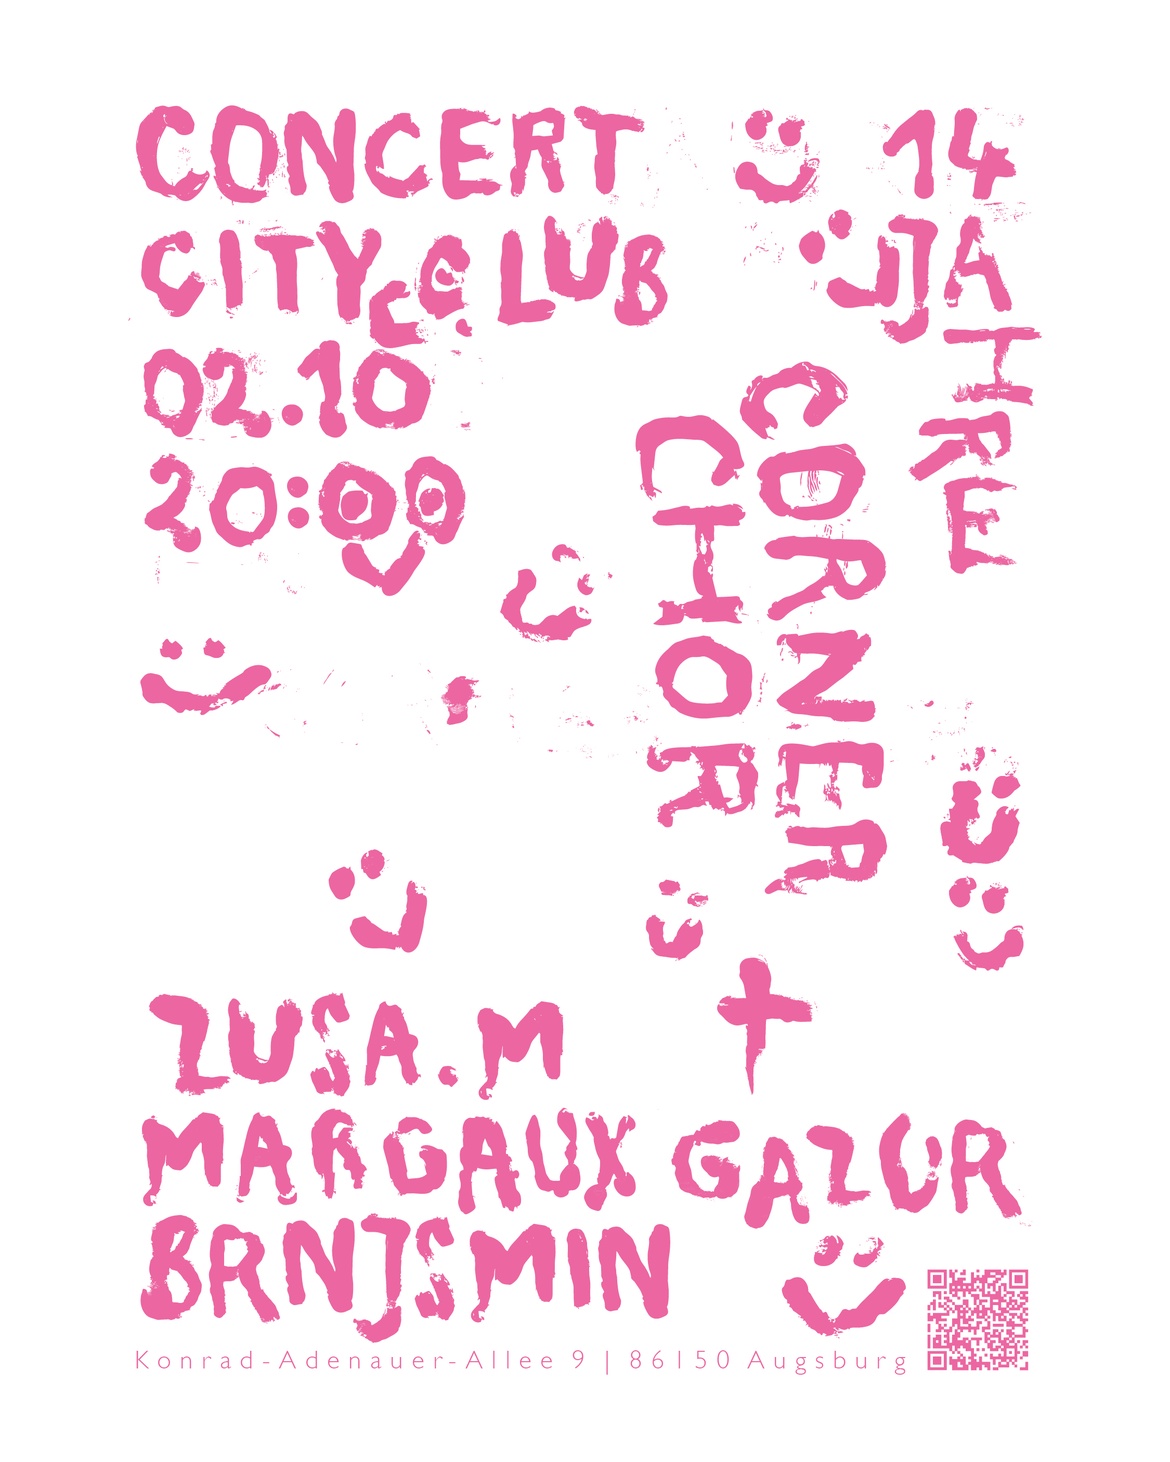 CONCERT
14
CITY CLUB
JAHRE
02.10
20:00
CORNER
CHOR
ZUSA.M
MARGAUX GAZUR
BRNJSMIN
Konrad-Adenauer-Allee 9 | 86150 Augsburg